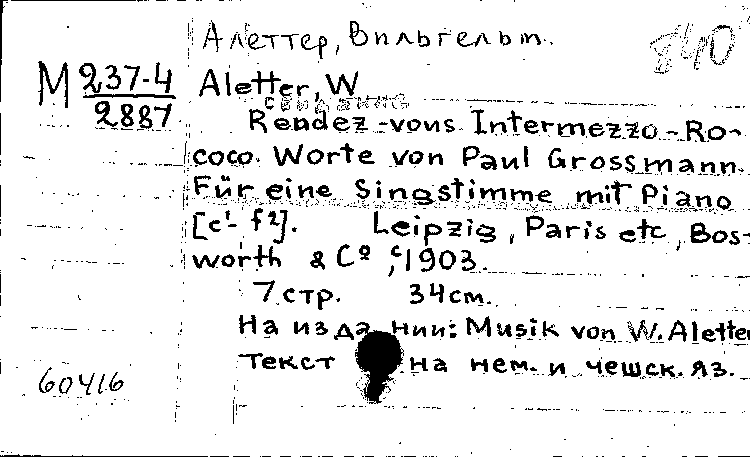 Алеттер, Вильгельм.
840
М 237-4
2887
Aletter, W
свидание
Rendez-vous Intermezzo-Ro-
coco. Worte von Paul Grossmann.
Für eine Singstimme mit Piano
[c¹- f²]. Leipzig, Paris etc, Bos-
worth & Cº, ᶜ1903.
7 стр. 34см.
На издании: Musik von W. Aletter
Текст на нем. и чешск. яз.
60416